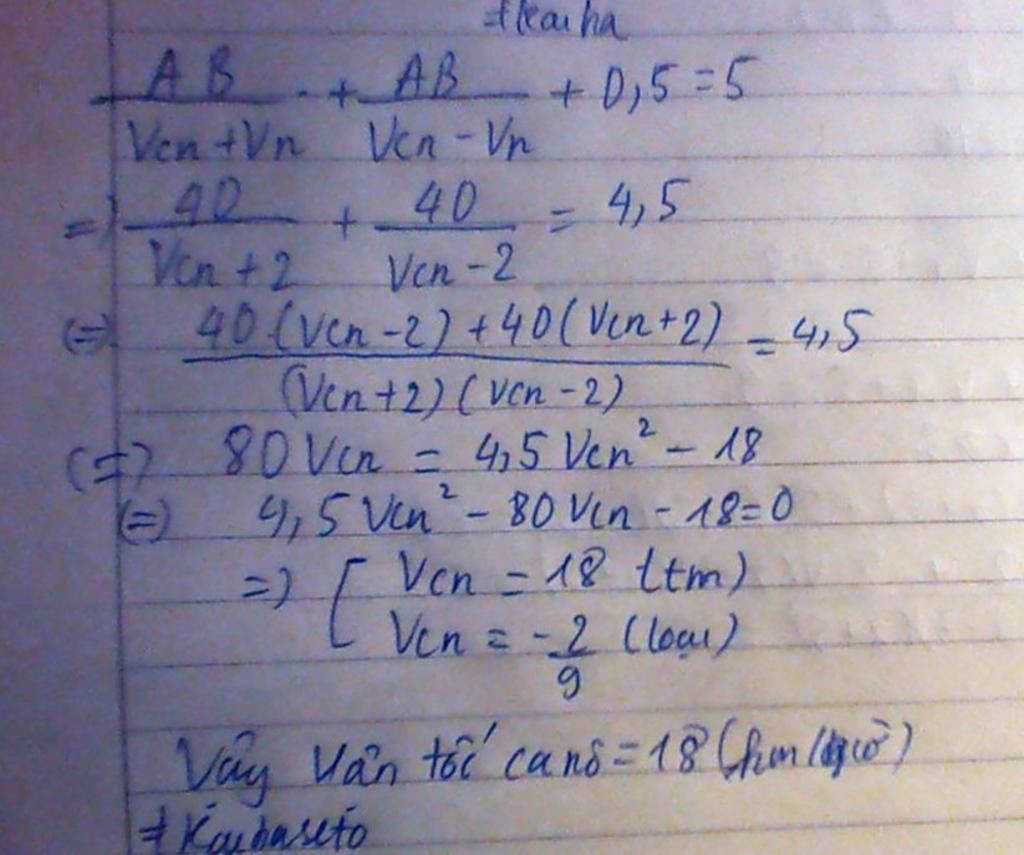 ≠Kaiha
AB/(Vcn+Vn) + AB/(Vcn-Vn) + 0,5=5
=) 40/(Vcn+2) + 40/(Vcn-2) = 4,5
(=) (40(Vcn-2)+40(Vcn+2))/((Vcn+2)(Vcn-2)) = 4,5
(=) 80Vcn = 4,5Vcn² - 18
(=) 4,5Vcn² - 80Vcn - 18=0
=) [ Vcn = 18 (tm)
Vcn = -2/9 (loại)
Vậy vận tốc canô=18(km/giờ)